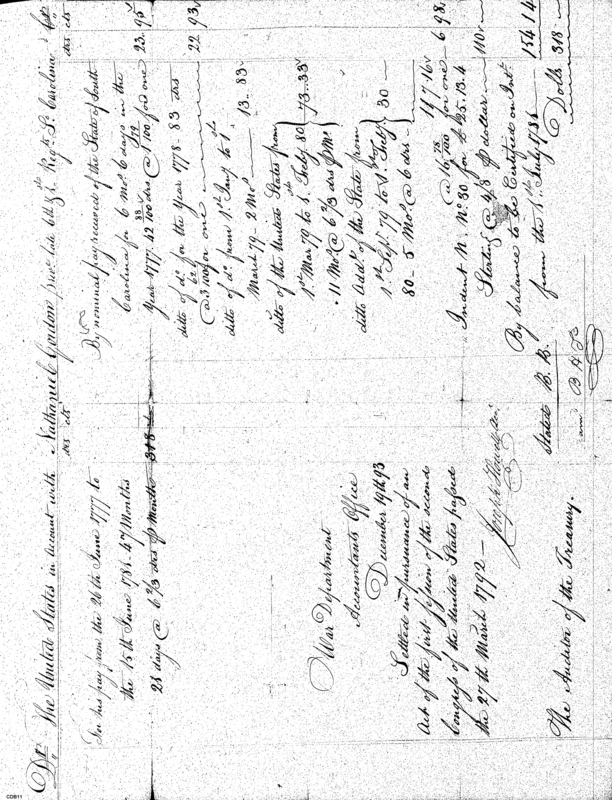 Dr The United States in account with Nathaniel Gordon late 6th & 1st Regts So Carolina Cr
drs cts
drs cts
To his pay from the 26th June 1777 to
the 15th June 1781. 47 Months
23 days @ 6 2/3 drs p Month 318
War Department
Accountants Office
December 19th 93
Settled in pursuance of an
Act of the first session of the second
Congress of the United States passed
the 27th March 1792 —
Joseph Howell
The Auditor of the Treasury.
By nominal pay received of the State of South
Carolina for 6 Mos 6 days in the
Year 1777. 42 88/100 drs @ 1 79/100 for one 23. 95
ditto of do for the Year 1778 - 83 drs
@ 3 62/100 for one 22 93
ditto of do from 1st Jany to 1st
March 79 - 2 Mos 13. 83
ditto of the United States from
1st Mar 79 to 1st Feby 80
11 Mos @ 6 2/3 drs p Mo 73..33
ditto Addl of the State from
1st Sept 79 to 1st Feby
80 - 5 Mos @ 6 drs - 30 —
@ for one 6 98
Indent N. No 30 for £25.13.4
Sterling @ 4/8 p dollar 110
By balance to be Certified on Intt
from the 1st July 1781 154 14
Dolls 318
Stated B. B.